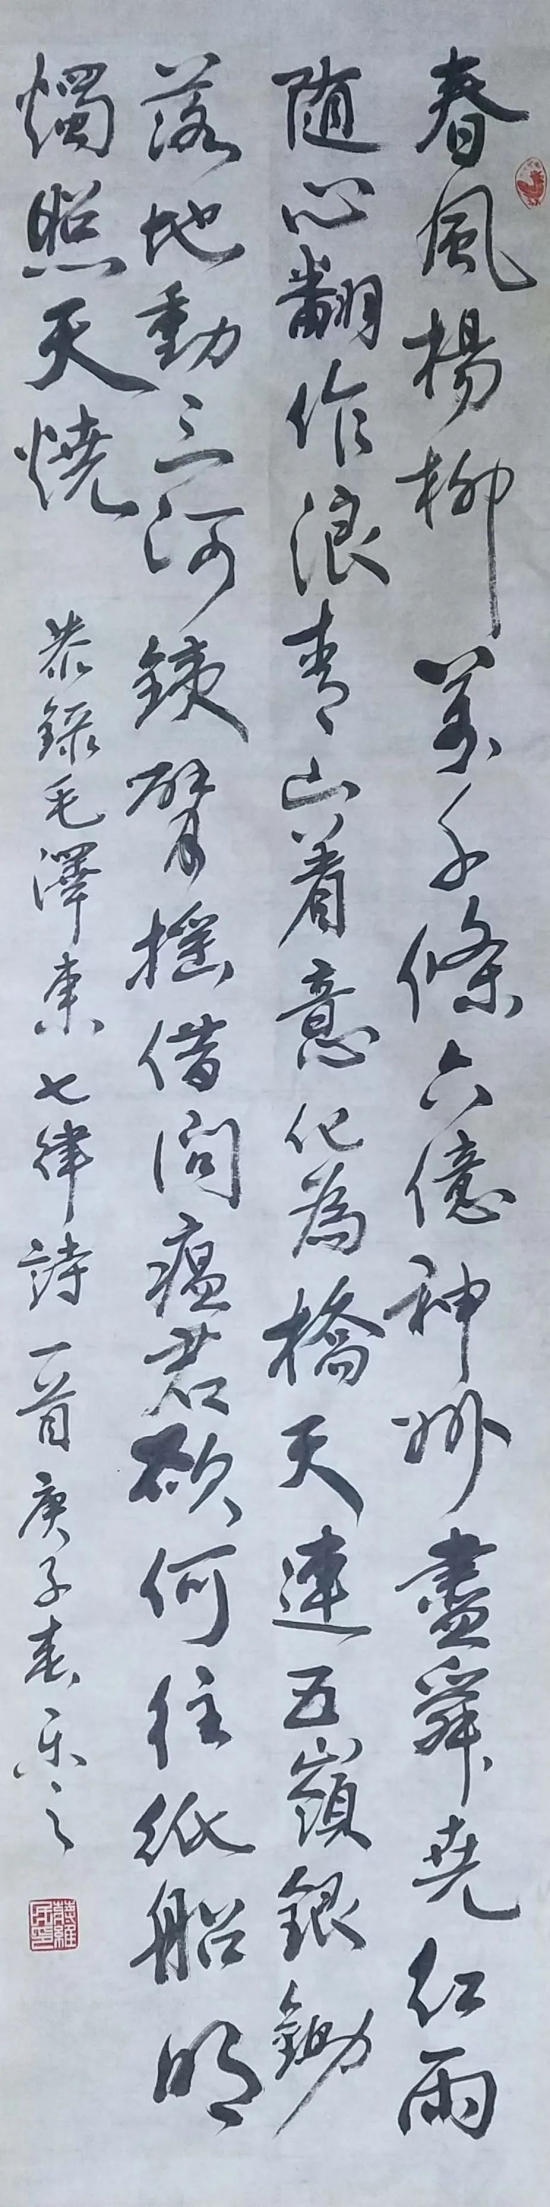 春風楊柳萬千條六億神州盡舜堯紅雨
随心翻作浪青山着意化為橋天連五嶺銀鋤
落地動三河鐵臂摇借問瘟君欲何往纸船明
燭照天燒
恭録毛澤東七律詩一首庚子春樂之